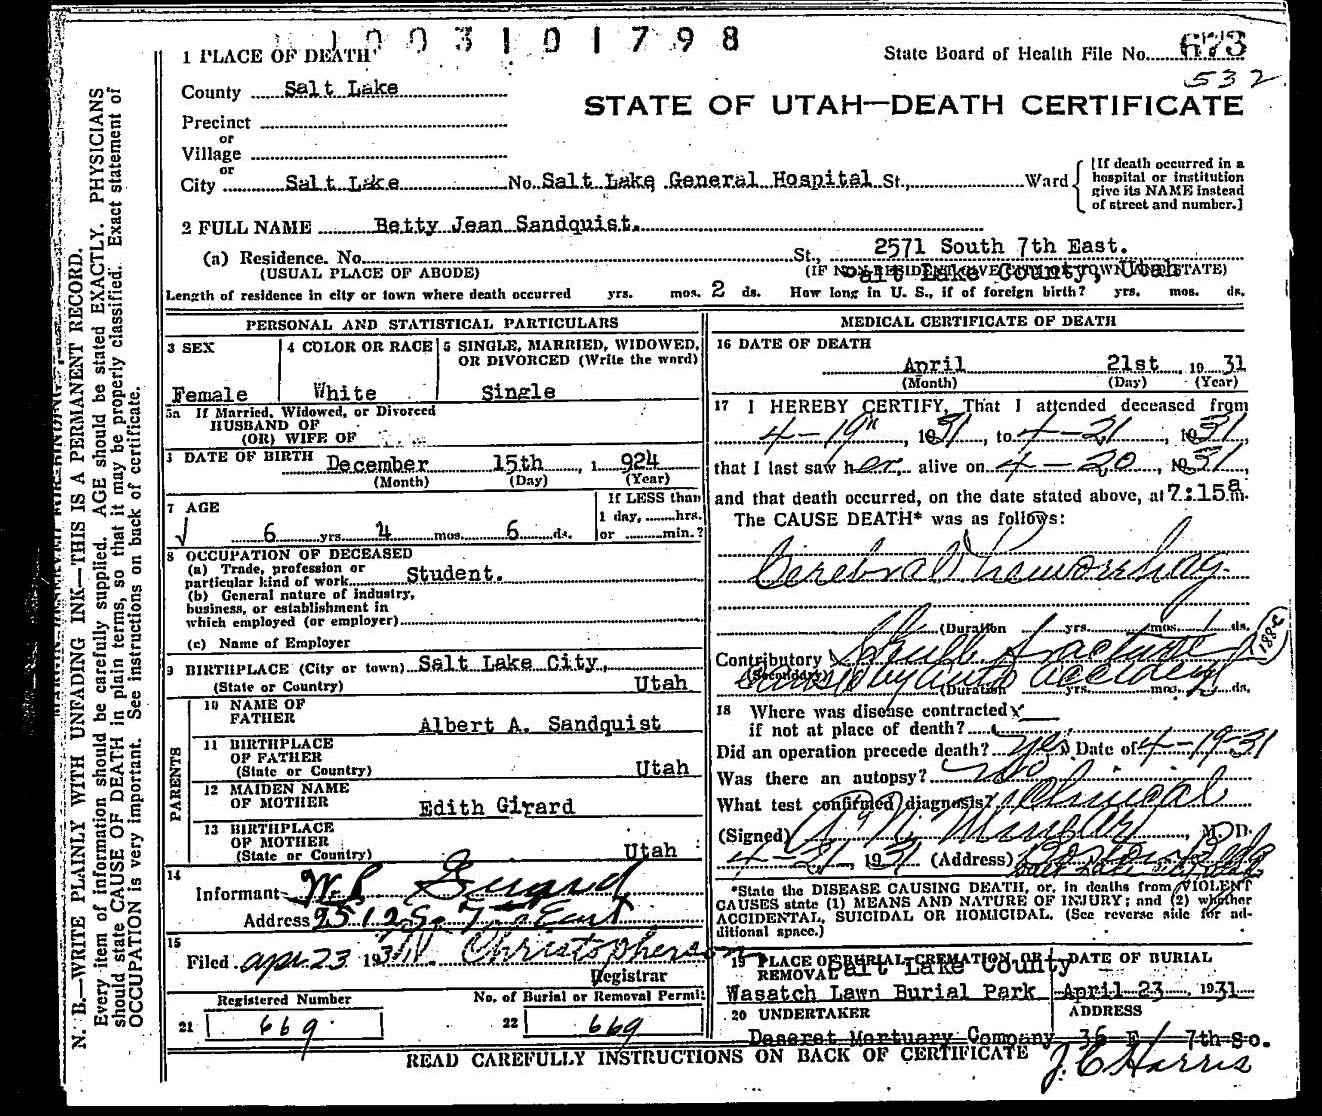 1003101798
1 PLACE OF DEATH
State Board of Health File No. 673
532
County Salt Lake
STATE OF UTAH—DEATH CERTIFICATE
Precinct
or
Village
or
City Salt Lake No. Salt Lake General Hospital St., Ward
[If death occurred in a hospital or institution give its NAME instead of street and number.]
2 FULL NAME Betty Jean Sandquist.
(a) Residence. No. St., 2571 South 7th East.
(USUAL PLACE OF ABODE) Salt Lake County, Utah
Length of residence in city or town where death occurred yrs. mos. 2 ds. How long in U. S., if of foreign birth? yrs. mos. ds.
PERSONAL AND STATISTICAL PARTICULARS
3 SEX
4 COLOR OR RACE
5 SINGLE, MARRIED, WIDOWED, OR DIVORCED (Write the word)
Female White Single
5a If Married, Widowed, or Divorced
HUSBAND OF
(OR) WIFE OF
DATE OF BIRTH December 15th, 1924
(Month) (Day) (Year)
7 AGE
If LESS than
1 day, hrs.
6 yrs. 4 mos. 6 ds. or min.?
8 OCCUPATION OF DECEASED
(a) Trade, profession or
particular kind of work Student.
(b) General nature of industry,
business, or establishment in
which employed (or employer)
(c) Name of Employer
9 BIRTHPLACE (City or town) Salt Lake City,
(State or Country) Utah
PARENTS
10 NAME OF
FATHER Albert A. Sandquist
11 BIRTHPLACE
OF FATHER
(State or Country) Utah
12 MAIDEN NAME
OF MOTHER Edith Girard
13 BIRTHPLACE
OF MOTHER
(State or Country) Utah
14
Informant
Address 2512 So 7th East
15
Filed Apr 23 1931 Christopherson
Registrar
Registered Number
No. of Burial or Removal Permit
21 669
22 669
MEDICAL CERTIFICATE OF DEATH
16 DATE OF DEATH
April 21st, 1931
(Month) (Day) (Year)
17 I HEREBY CERTIFY, That I attended deceased from
4-19", 1931, to 4-21, 1931,
that I last saw her alive on 4-20, 1931,
and that death occurred, on the date stated above, at 7:15 a m.
The CAUSE DEATH* was as follows:
Cerebral hemorrhage
(Duration yrs. mos. ds.
Contributory Skull fracture 188c
(Secondary) by auto accident
(Duration yrs. mos. 2 ds.
18 Where was disease contracted
if not at place of death?
Did an operation precede death? Yes Date of 4-19-31
Was there an autopsy? No
What test confirmed diagnosis? Clinical
(Signed) M. D.
4-21, 1931 (Address) Boston Bldg
*State the DISEASE CAUSING DEATH, or, in deaths from VIOLENT
CAUSES state (1) MEANS AND NATURE OF INJURY; and (2) whether
ACCIDENTAL, SUICIDAL OR HOMICIDAL. (See reverse side for ad-
ditional space.)
19 PLACE OF BURIAL, CREMATION, OR
REMOVAL Salt Lake County
DATE OF BURIAL
Wasatch Lawn Burial Park April 23, 1931
20 UNDERTAKER
ADDRESS
Deseret Mortuary Company 36 E 7th So.
READ CAREFULLY INSTRUCTIONS ON BACK OF CERTIFICATE
J. C. Harris
N. B.—WRITE PLAINLY WITH UNFADING INK—THIS IS A PERMANENT RECORD.
Every item of information should be carefully supplied. AGE should be stated EXACTLY. PHYSICIANS
should state CAUSE OF DEATH in plain terms, so that it may be properly classified. Exact statement of
OCCUPATION is very important. See instructions on back of certificate.